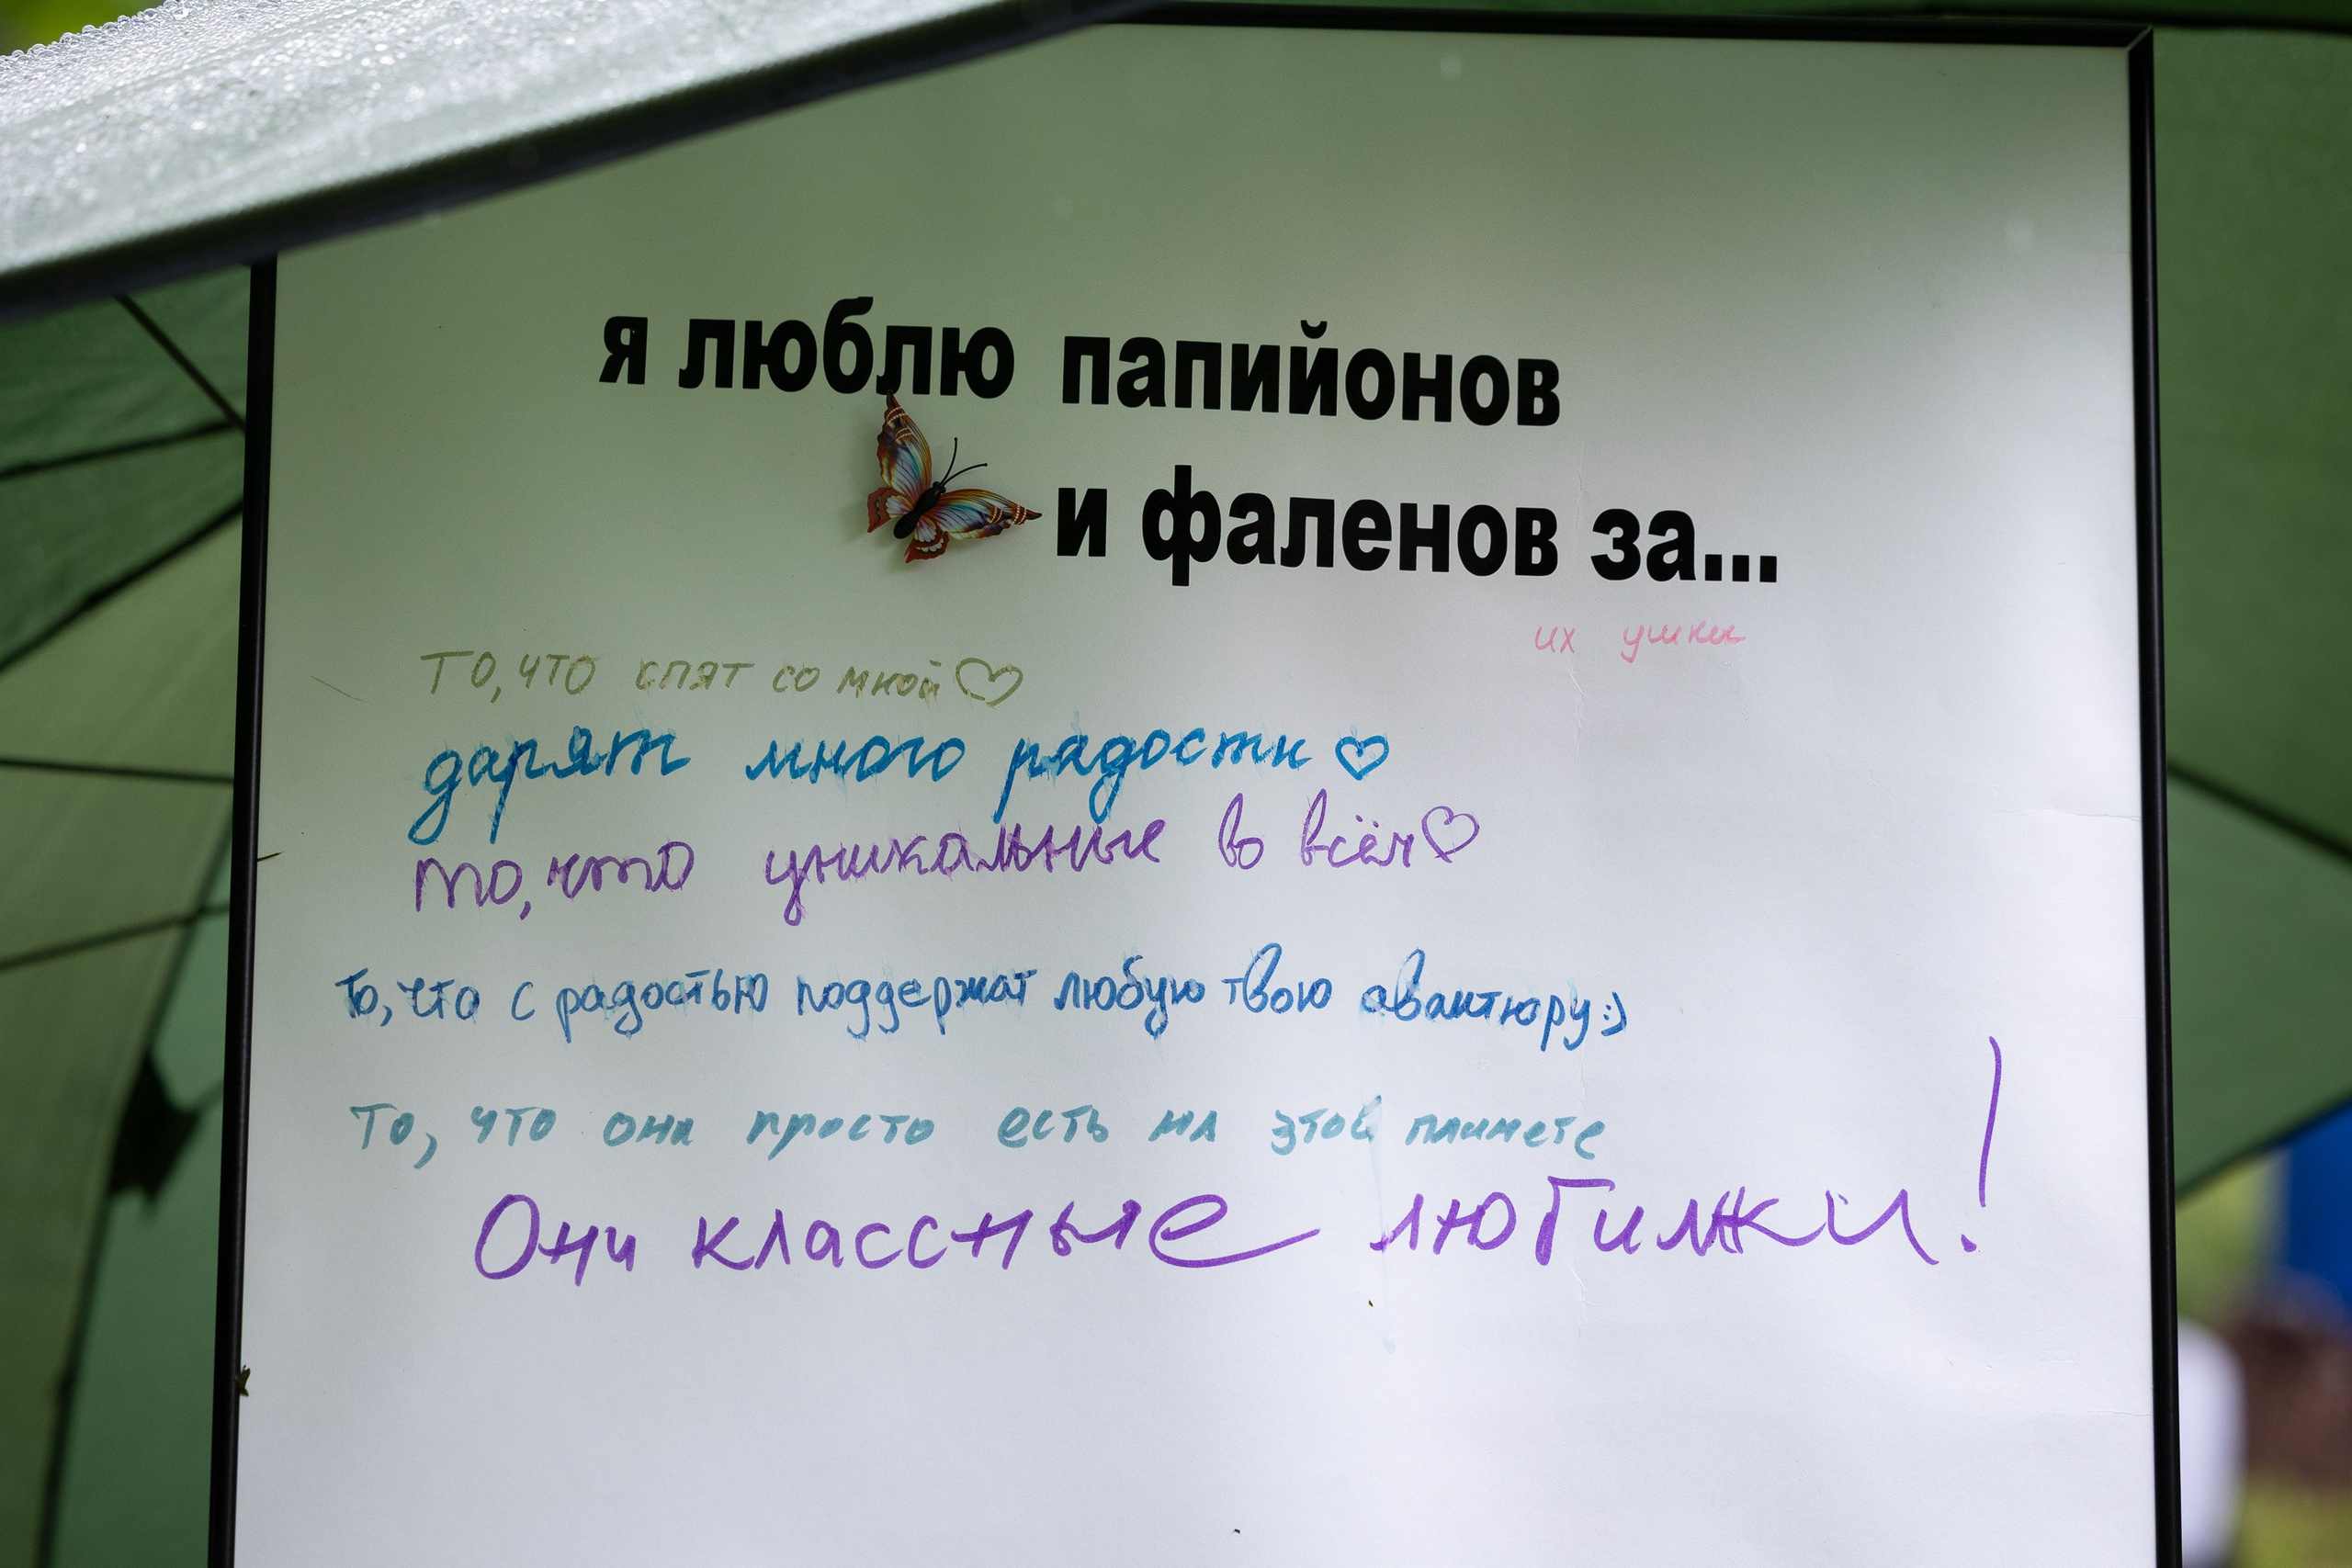 я люблю папийонов
и фаленов за...
их ушки
То, что спят со мной♡
дарят много радости♡
то, что уникальные во всём♡
То, что с радостью поддержат любую твою авантюру:)
То, что они просто есть на этой планете
Они классные любимки!